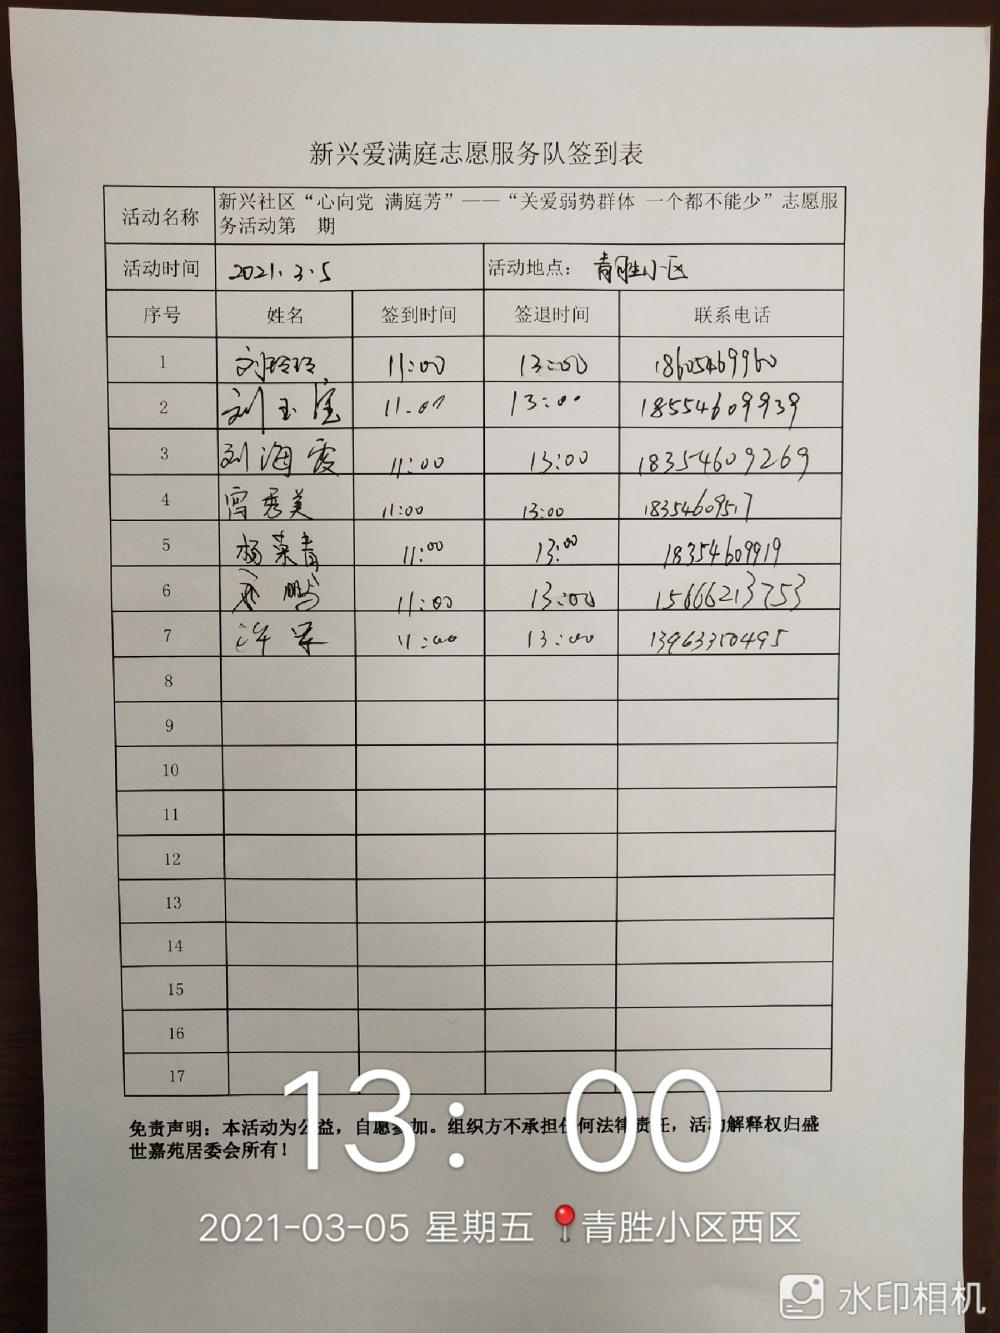 新兴爱满庭志愿服务队签到表
活动名称 新兴社区“心向党 满庭芳”——“关爱弱势群体 一个都不能少”志愿服
务活动第 期
活动时间 2021.3.5 活动地点： 青胜小区
序号 姓名 签到时间 签退时间 联系电话
1 刘玲玲 11:00 13:00 18605469960
2 刘玉 11:00 13:00 18554609939
3 刘海霞 11:00 13:00 18354609269
4 秀美 11:00 13:00 18354609517
5 杨荣青 11:00 13:00 18354609919
6 鹏 11:00 13:00 15666213753
7 许军 11:00 13:00 13963350495
8
9
10
11
12
13
14
15
16
17
免责声明：本活动为公益，自愿参加。组织方不承担任何法律责任，活动解释权归盛
世嘉苑居委会所有！
13：00
2021-03-05 星期五 📍青胜小区西区
水印相机